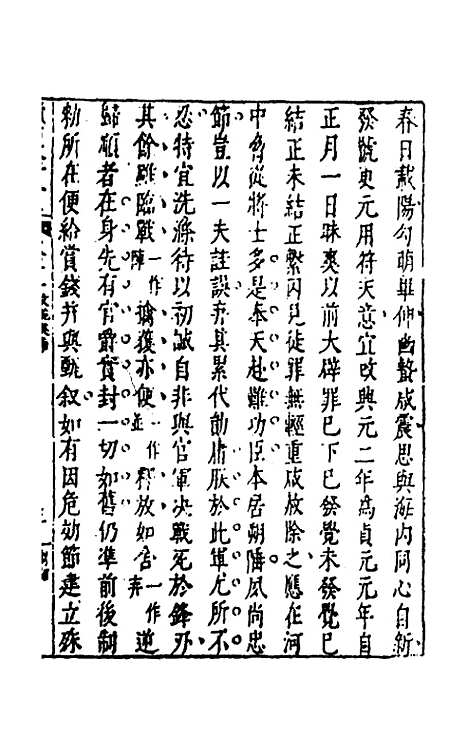 春日載陽勾萌畢伸幽蟄咸震思與海内同心自新
發號更元用符天意宜改興元二年爲貞元元年自
正月一日昧爽以前大辟罪已下已發覺未發覺已
結正未結正繫囚見徒罪無輕重咸赦除之應在河
中脅從將士多是奉天赴難功臣本居朔陲風尚忠
節豈以一夫詿誤弃其累代勤庸朕於此軍尤所不
忍特宜洗滌待以初誠自非與官軍決戰死於鋒刃
其餘雖臨戰一作陣擒獲亦便一作並釋放如舍一作弃逆
歸順者在身先有官爵實封一切如舊仍準前後制
勑所在便給賞錢并與甄叙如有因危効節建立殊